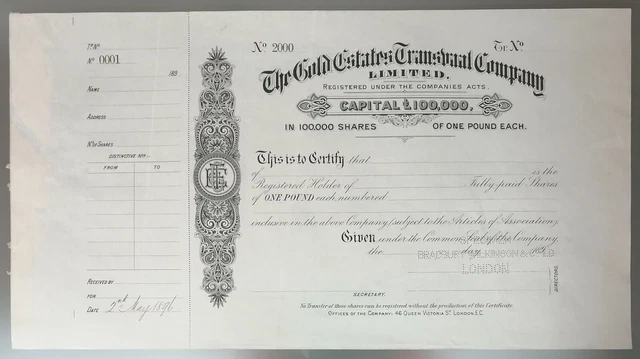 Tr. No
No 0001
189
NAME
ADDRESS
No. OF SHARES
DISTINCTIVE Nos:-
FROM TO
RECEIVED BY
FOR
DATE 2nd May 1896
No 2000 Tr. No
The Gold Estates Transvaal Company
LIMITED.
REGISTERED UNDER THE COMPANIES ACTS.
CAPITAL £100,000,
IN 100,000 SHARES OF ONE POUND EACH.
This is to Certify that
of is the
Registered Holder of Fully-paid Shares
of ONE POUND each numbered
inclusive in the above Company, subject to the Articles of Association,
Given under the Common Seal of the Company,
the day 189
BRADBURY WILKINSON & Co LD
LONDON
DIRECTORS
SECRETARY.
No Transfer of these shares can be registered without the production of this Certificate.
OFFICES OF THE COMPANY: 46 QUEEN VICTORIA ST. LONDON. E.C.